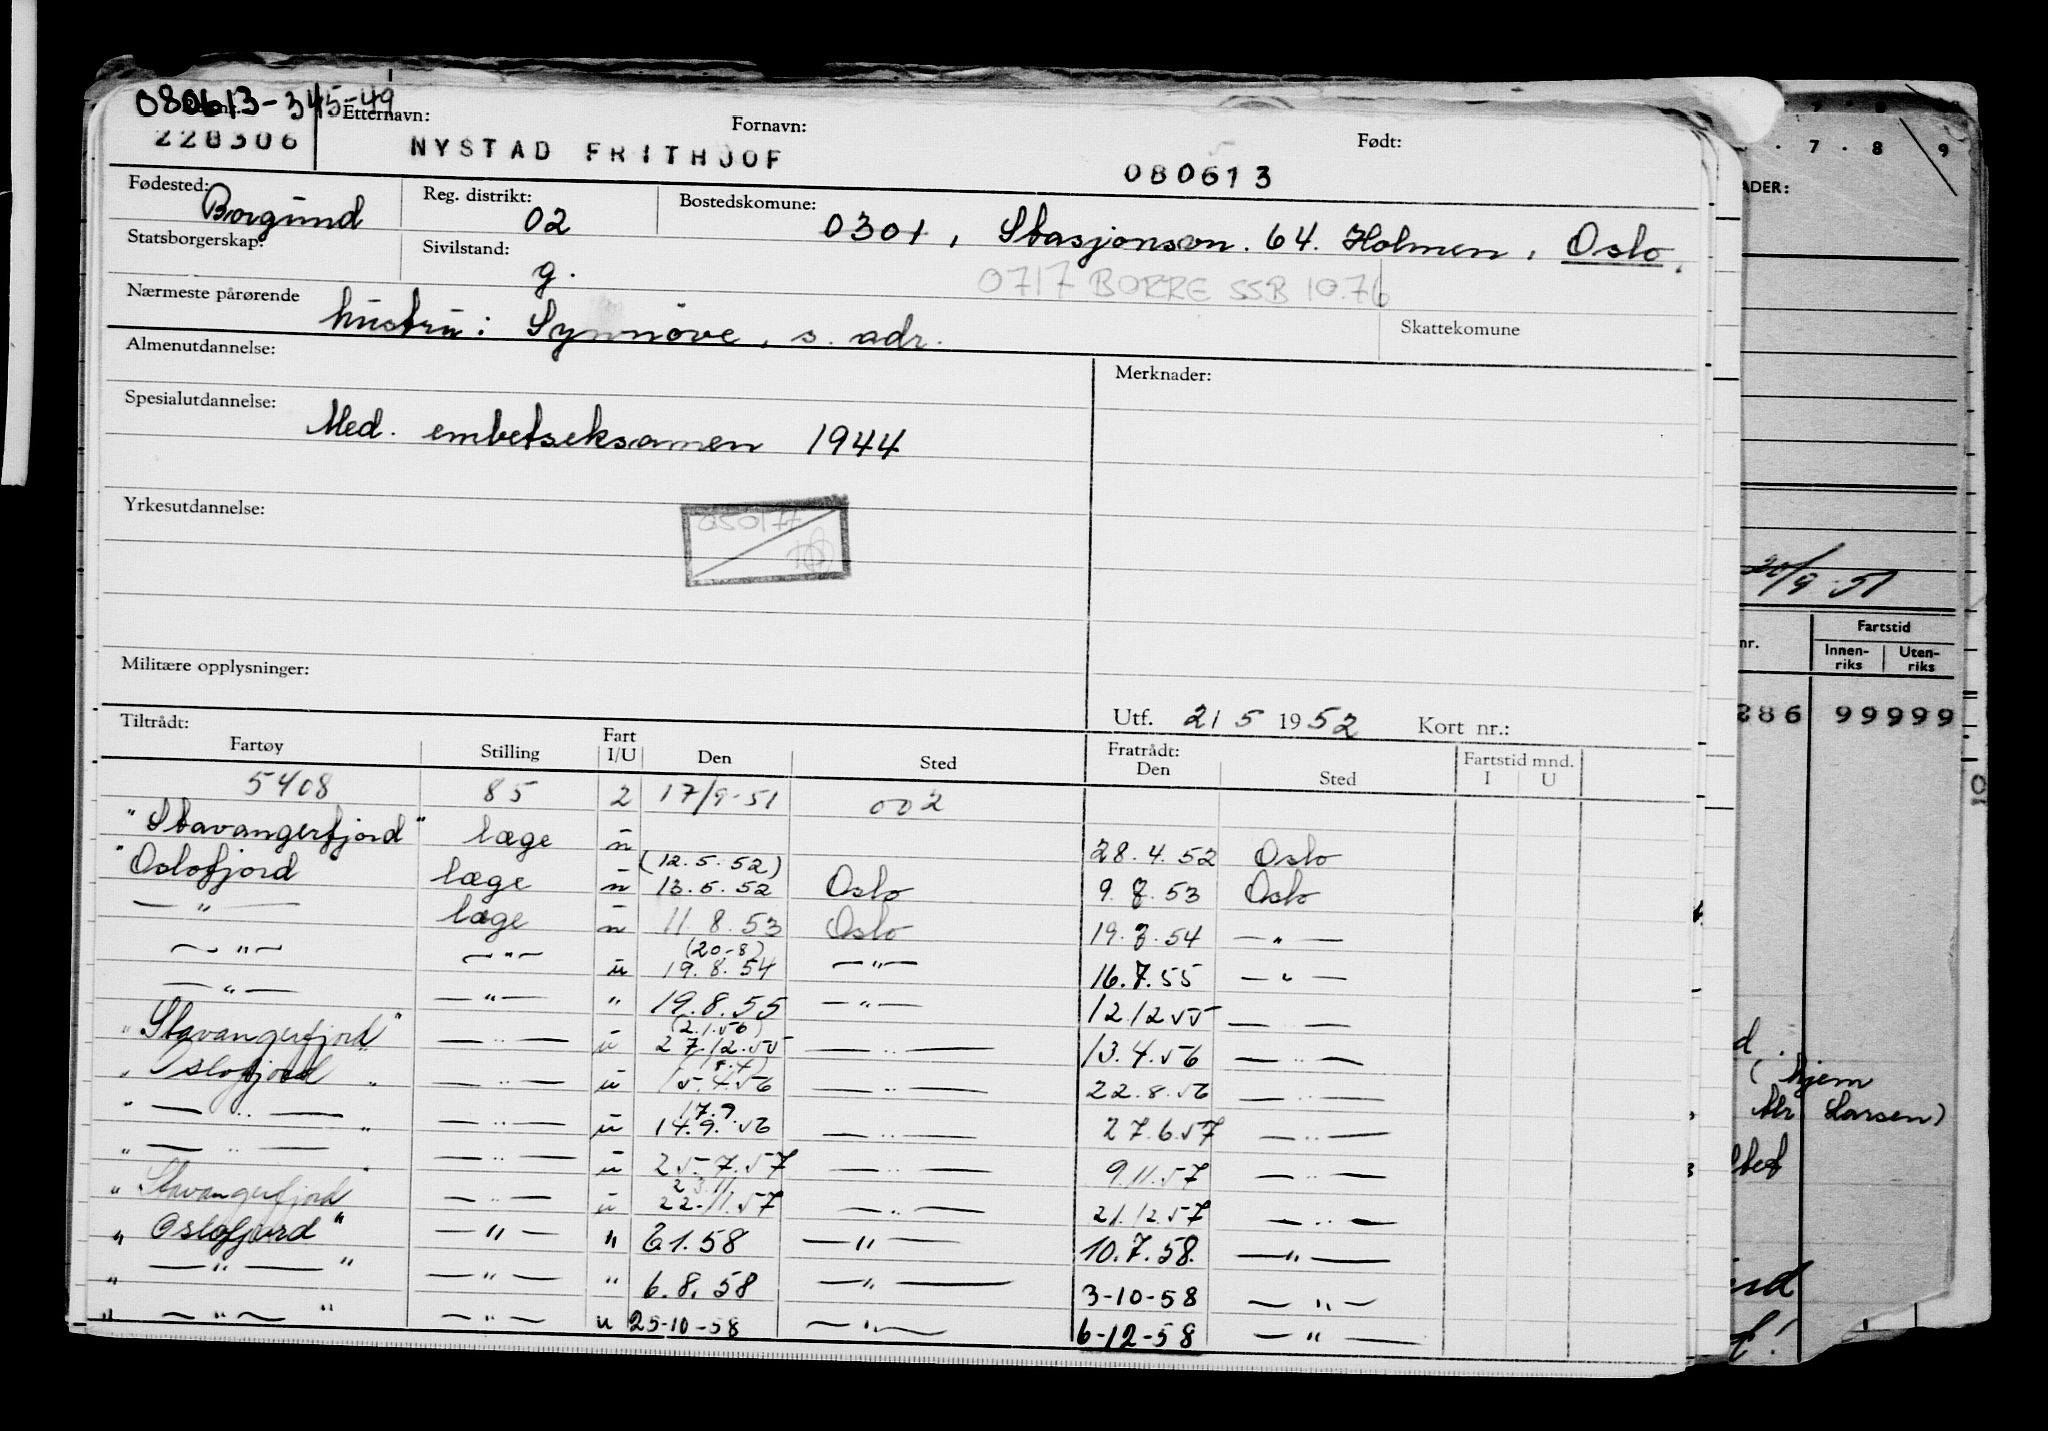 080613-345-49
228306 Etternavn: Fornavn: Født:
NYSTAD FRITHJOF 080613
Fødested: Borgund Reg. distrikt: 02 Bostedskomune: 0301, Stasjonsvn. 64. Holmen, Oslo.
Statsborgerskap: Sivilstand: g. 0717 BORRE SSB 10.76
Nærmeste pårørende hustru: Synnöve, s. adr. Skattekomune
Almenutdannelse: Merknader:
Spesialutdannelse: Med. embetseksamen 1944
Yrkesutdannelse: 050177
Militære opplysninger:
Utf. 21 5 1952 Kort nr.:
Tiltrådt: Fratrådt: Fartstid mnd.
Fartøy Stilling Fart I/U Den Sted Den Sted I U
5408 85 2 17/9-51 002
"Stavangerfjord" læge u 28.4.52 Oslo
(12.5.52)
"Oslofjord læge u 13.5.52 Oslo 9.7.53 Oslo
— " — læge u 11.8.53 Oslo 19.7.54 — " —
(20-8)
— " — — " — u 19.8.54 — " — 16.7.55 — " —
— " — — " — " 19.8.55 — " — 12.12.55 — " —
(2.1.56)
"Stavangerfjord" — " — u 27.12.55 — " — 13.4.56 — " —
"Oslofjord" — " — u 15.4.56 — " — 22.8.56 — " —
17.9.
" — " — " — " — u 14.9.56 — " — 27.6.57 — " —
" — " — " — " — u 25.7.57 — " — 9.11.57 — " —
23.11
"Stavangerfjord" — " — u 22.11.57 — " — 21.12.57 — " —
"Oslofjord" — " — " 6.1.58 — " — 10.7.58. — " —
" — " — " — " — " 6.8.58 — " — 3-10-58 — " —
" — " — " — " — u 25-10-58 — " — 6-12-58 — " —
7 . 8 9
ADER:
20/9-51
nr. Fartstid
Innen-riks Uten-riks
286 99999
d.
(hjem
Larsen)